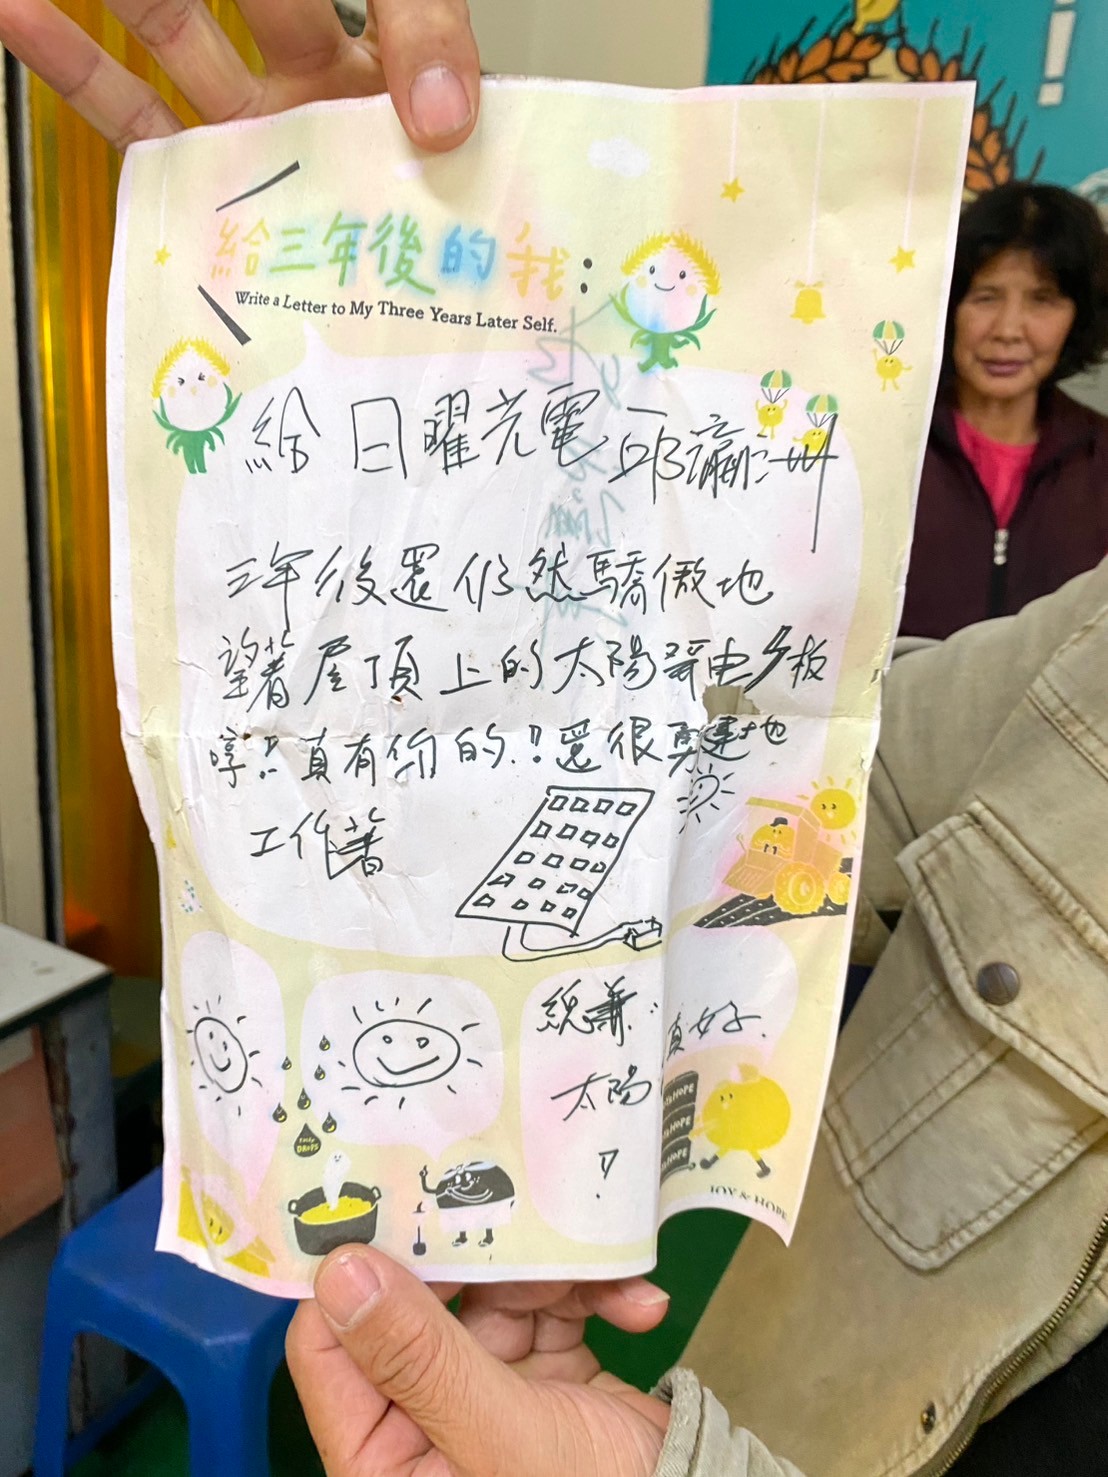 給三年後的我：
Write a Letter to My Three Years Later Self.
給 日曜光電 邱瀛洲
三年後還仍然驕傲地
望著屋頂上的太陽電板
哼!! 真有你的!! 還很勇健地
工作著
真好.
太陽
!!
DROPS
HOPE
HOPE
HOPE
JOY & HOPE